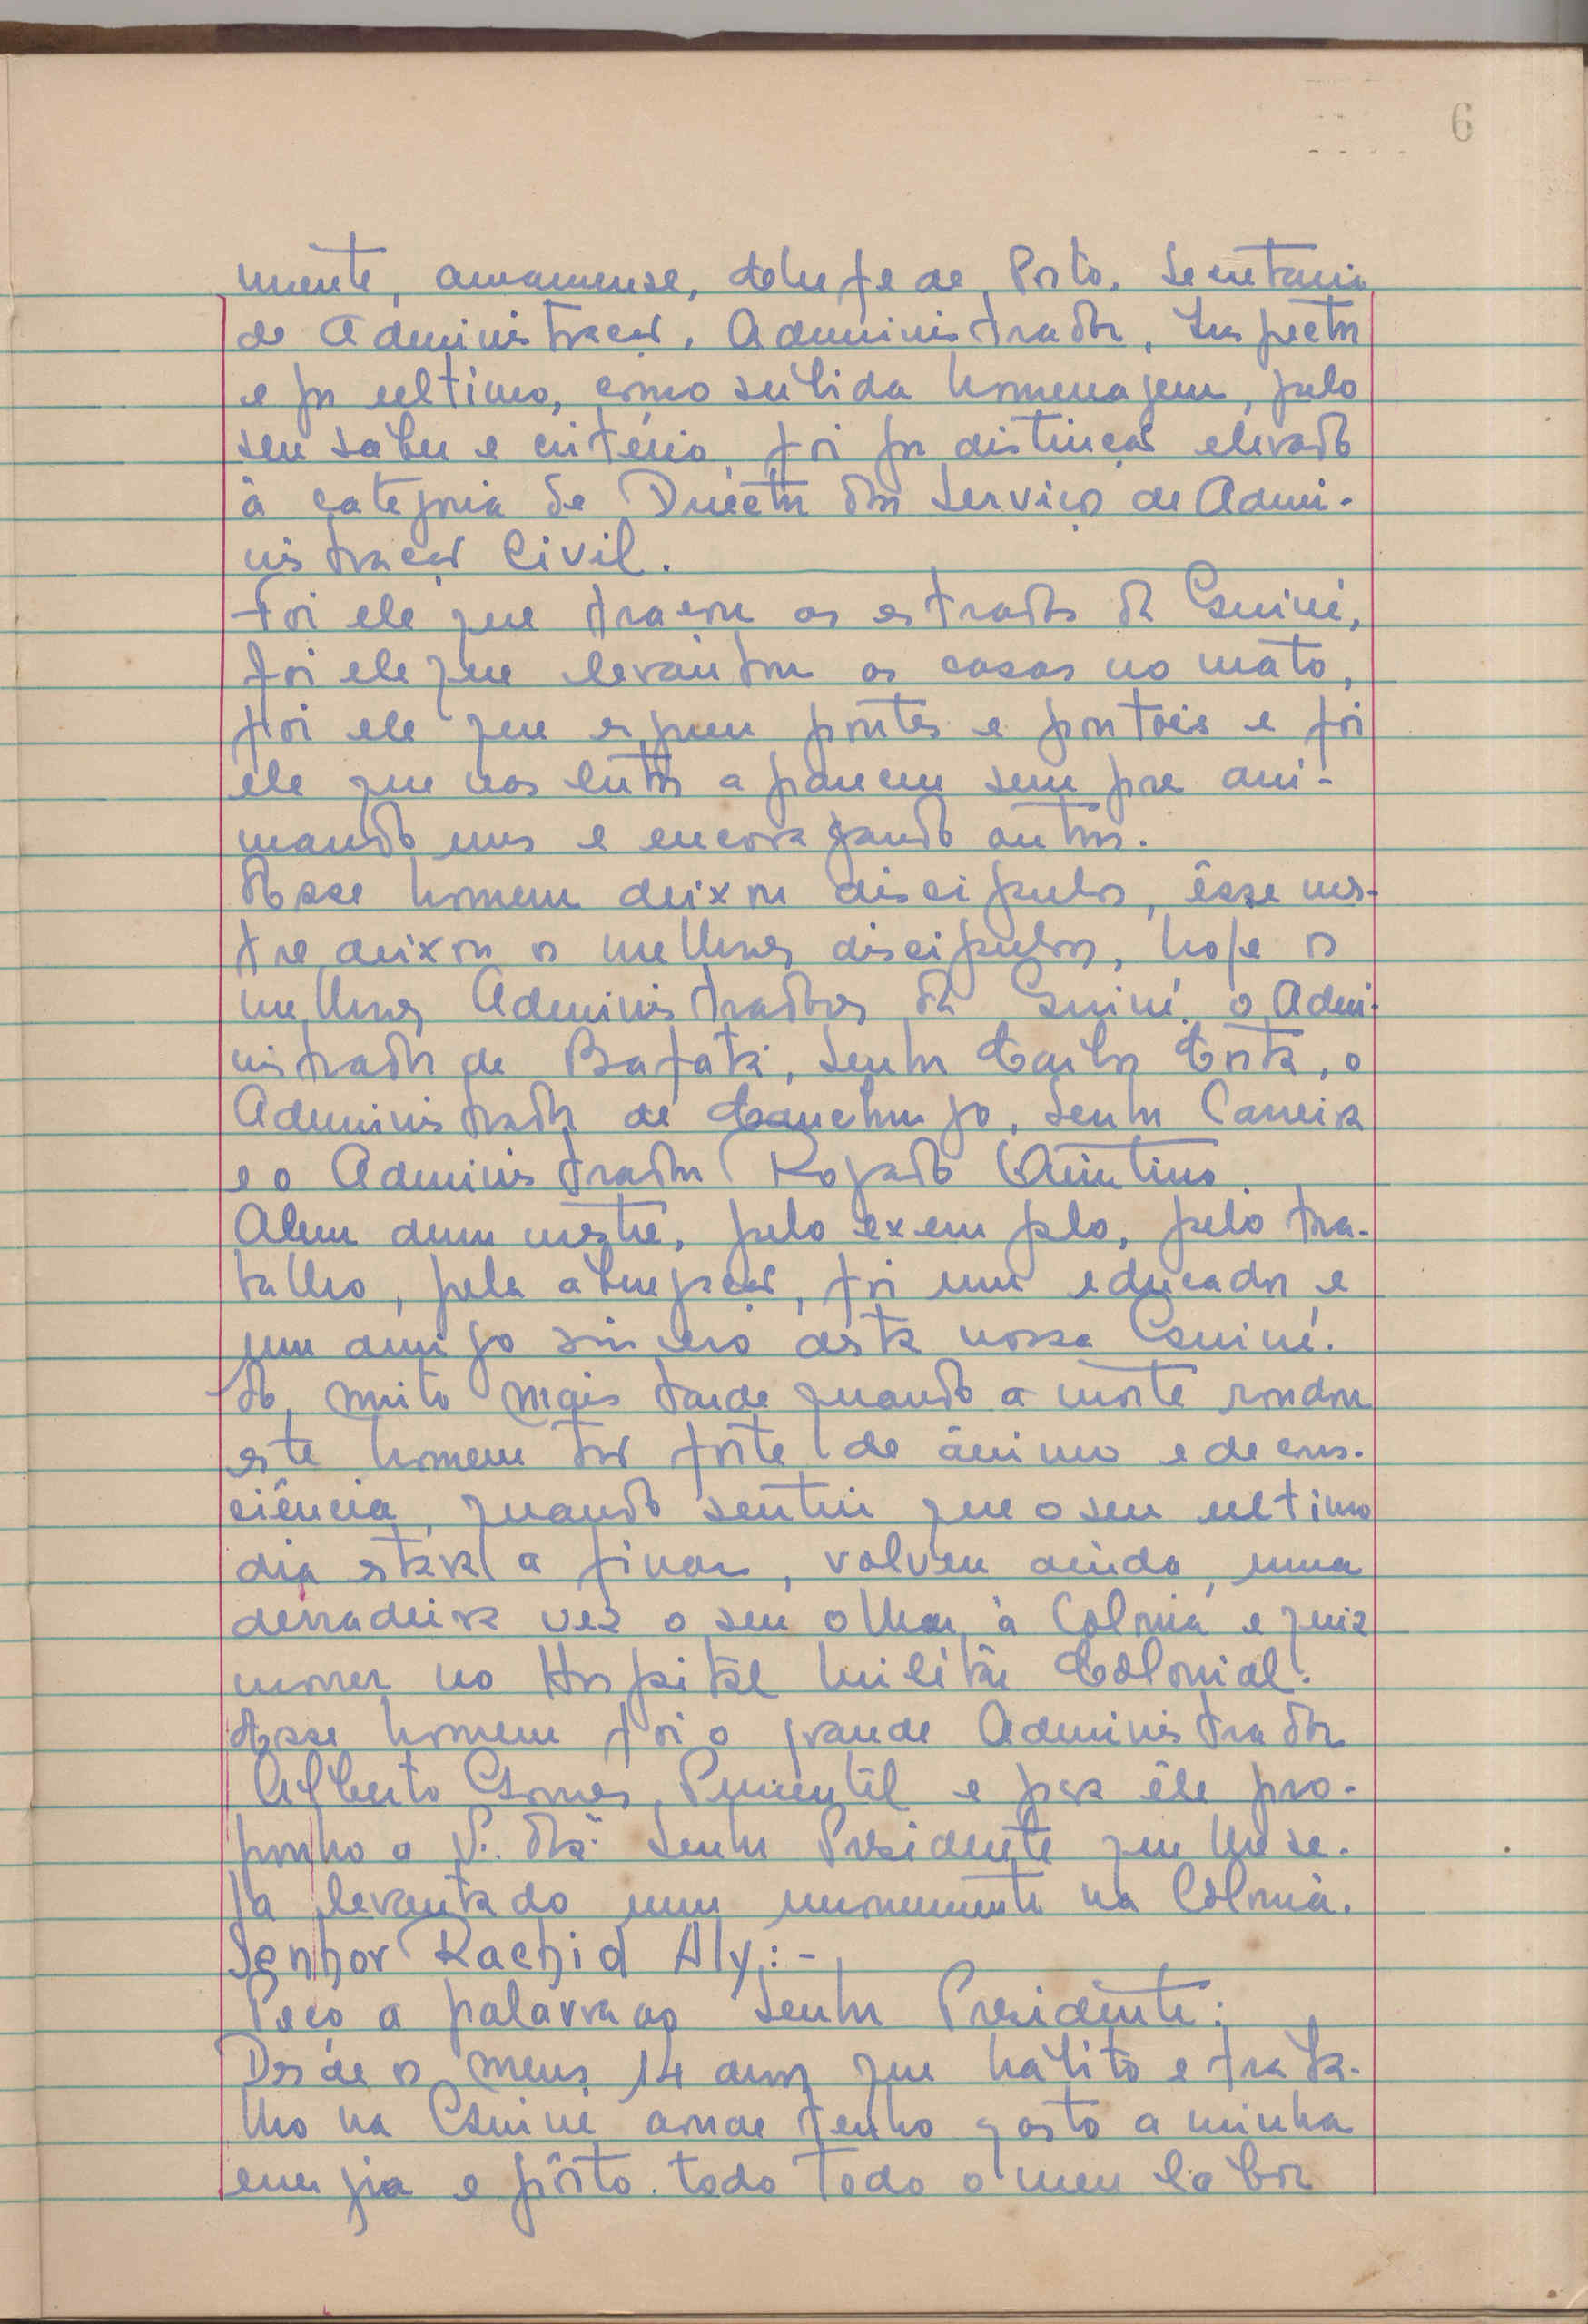 6
mente, amanuense, Chefe de Posto, Secretario
de Administração, Administrador, Inspector
e por ultimo, como subida homenagem, pelo
seu saber e critério, foi por distinção elevado
à categoria de Director dos Serviços de Admi-
nistração Civil.
Foi ele que traçou as estradas da Guiné,
foi ele que levantou as casas no mato,
foi ele que ergueu pontes e pontões e foi
ele que nos lutos aparecem sempre ani-
mando uns e encorajando outros.
Esse homem deixou discipulos, êsse mes-
tre deixou os melhores discipulos, hoje os
melhores Administradores da Guiné, o Admi-
nistrador de Bafatá, Senhor Carlos Costa, o
Administrador de Canchungo, Senhor Carreira
e o Administrador Rogado Quintino.
Alem dum mestre, pelo exemplo, pelo tra-
balho, pela abnegação, foi um educador e
um amigo sincero desta nossa Guiné.
E, muito mais tarde quando a morte rondou
este homem tão forte de ânimo e de cons-
ciência, quando sentiu que o seu ultimo
dia estava a findar, volveu ainda, uma
derradeira vez o seu olhar à Colonia e quiz
morrer no Hospital Militar Colonial.
Esse homem foi o grande Administrador
Alberto Gomes Pimentel e para êle pro-
ponho a V. Exª. Senhor Presidente que lhe se-
ja levantado um monumento na Colónia.
Senhor Rachid Aly:-
Peço a palavra ao Senhor Presidente:
Desde os meus 14 anos que habito e traba-
lho na Guiné aonde tenho gasto a minha
energia e pôsto todo todo o meu labor